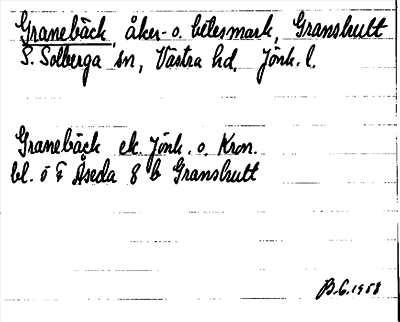 Granebäck, åker- o. betesmark, Granshult
S. Solberga sn, Västra hd, Jönk. l.
Granebäck ek. Jönk. o. Kron.
bl. ö Åseda 8 b Granshult
B.G. 1958